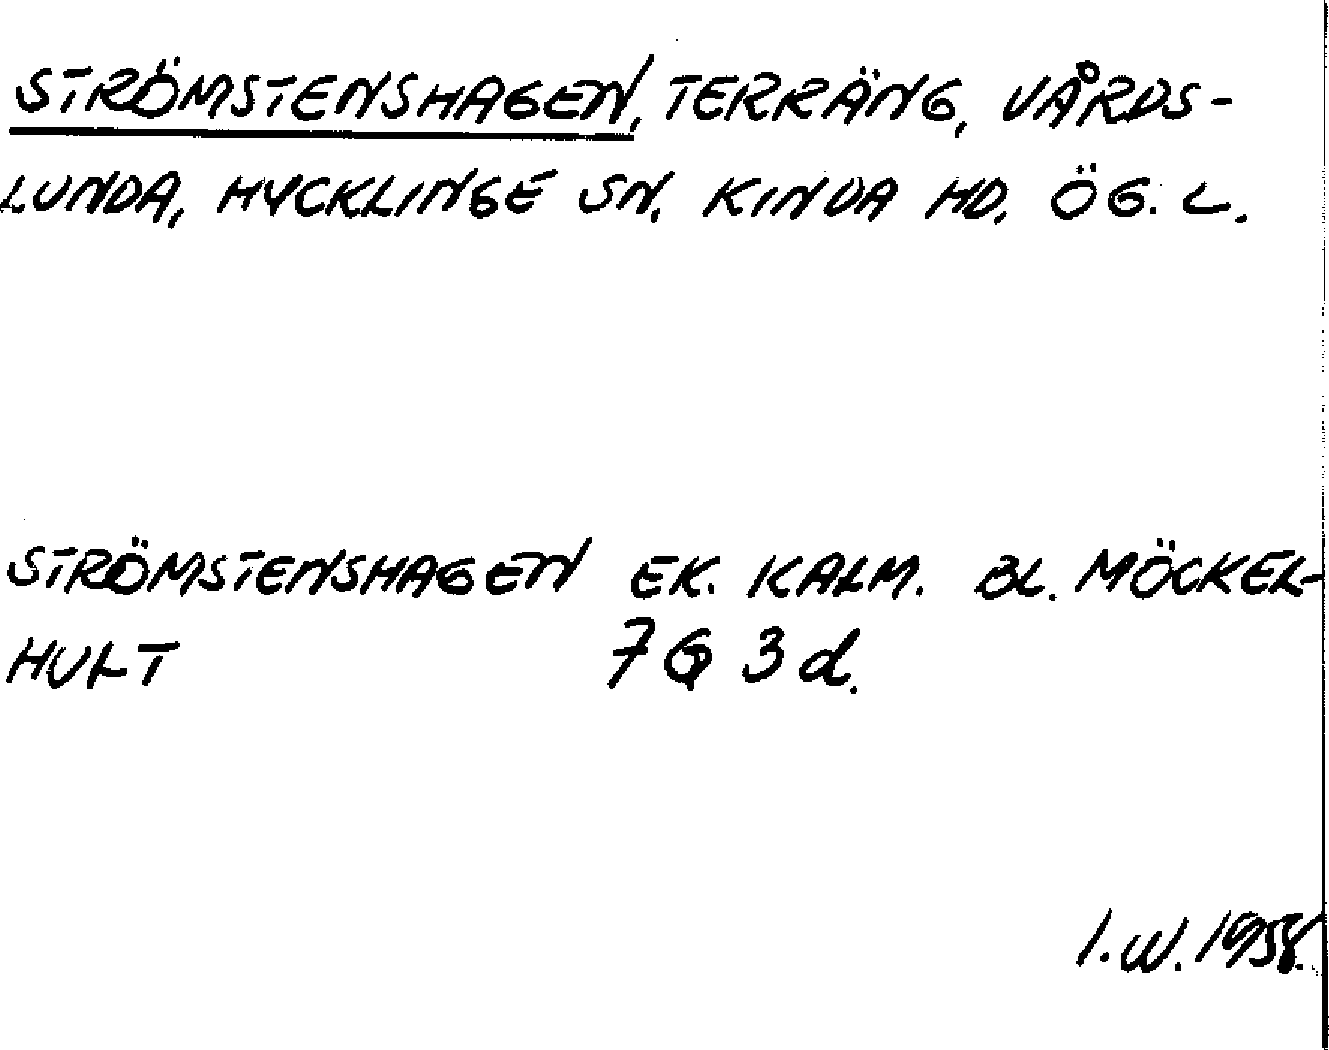 STRÖMSTENSHAGEN, TERRÄNG, VÅRDS-
LUNDA, HYCKLINGE SN. KINDA HD. ÖG. L.
STRÖMSTENSHAGEN EK. KALM. BL. MÖCKEL-
HULT 7G 3d.
I.W. 1958.